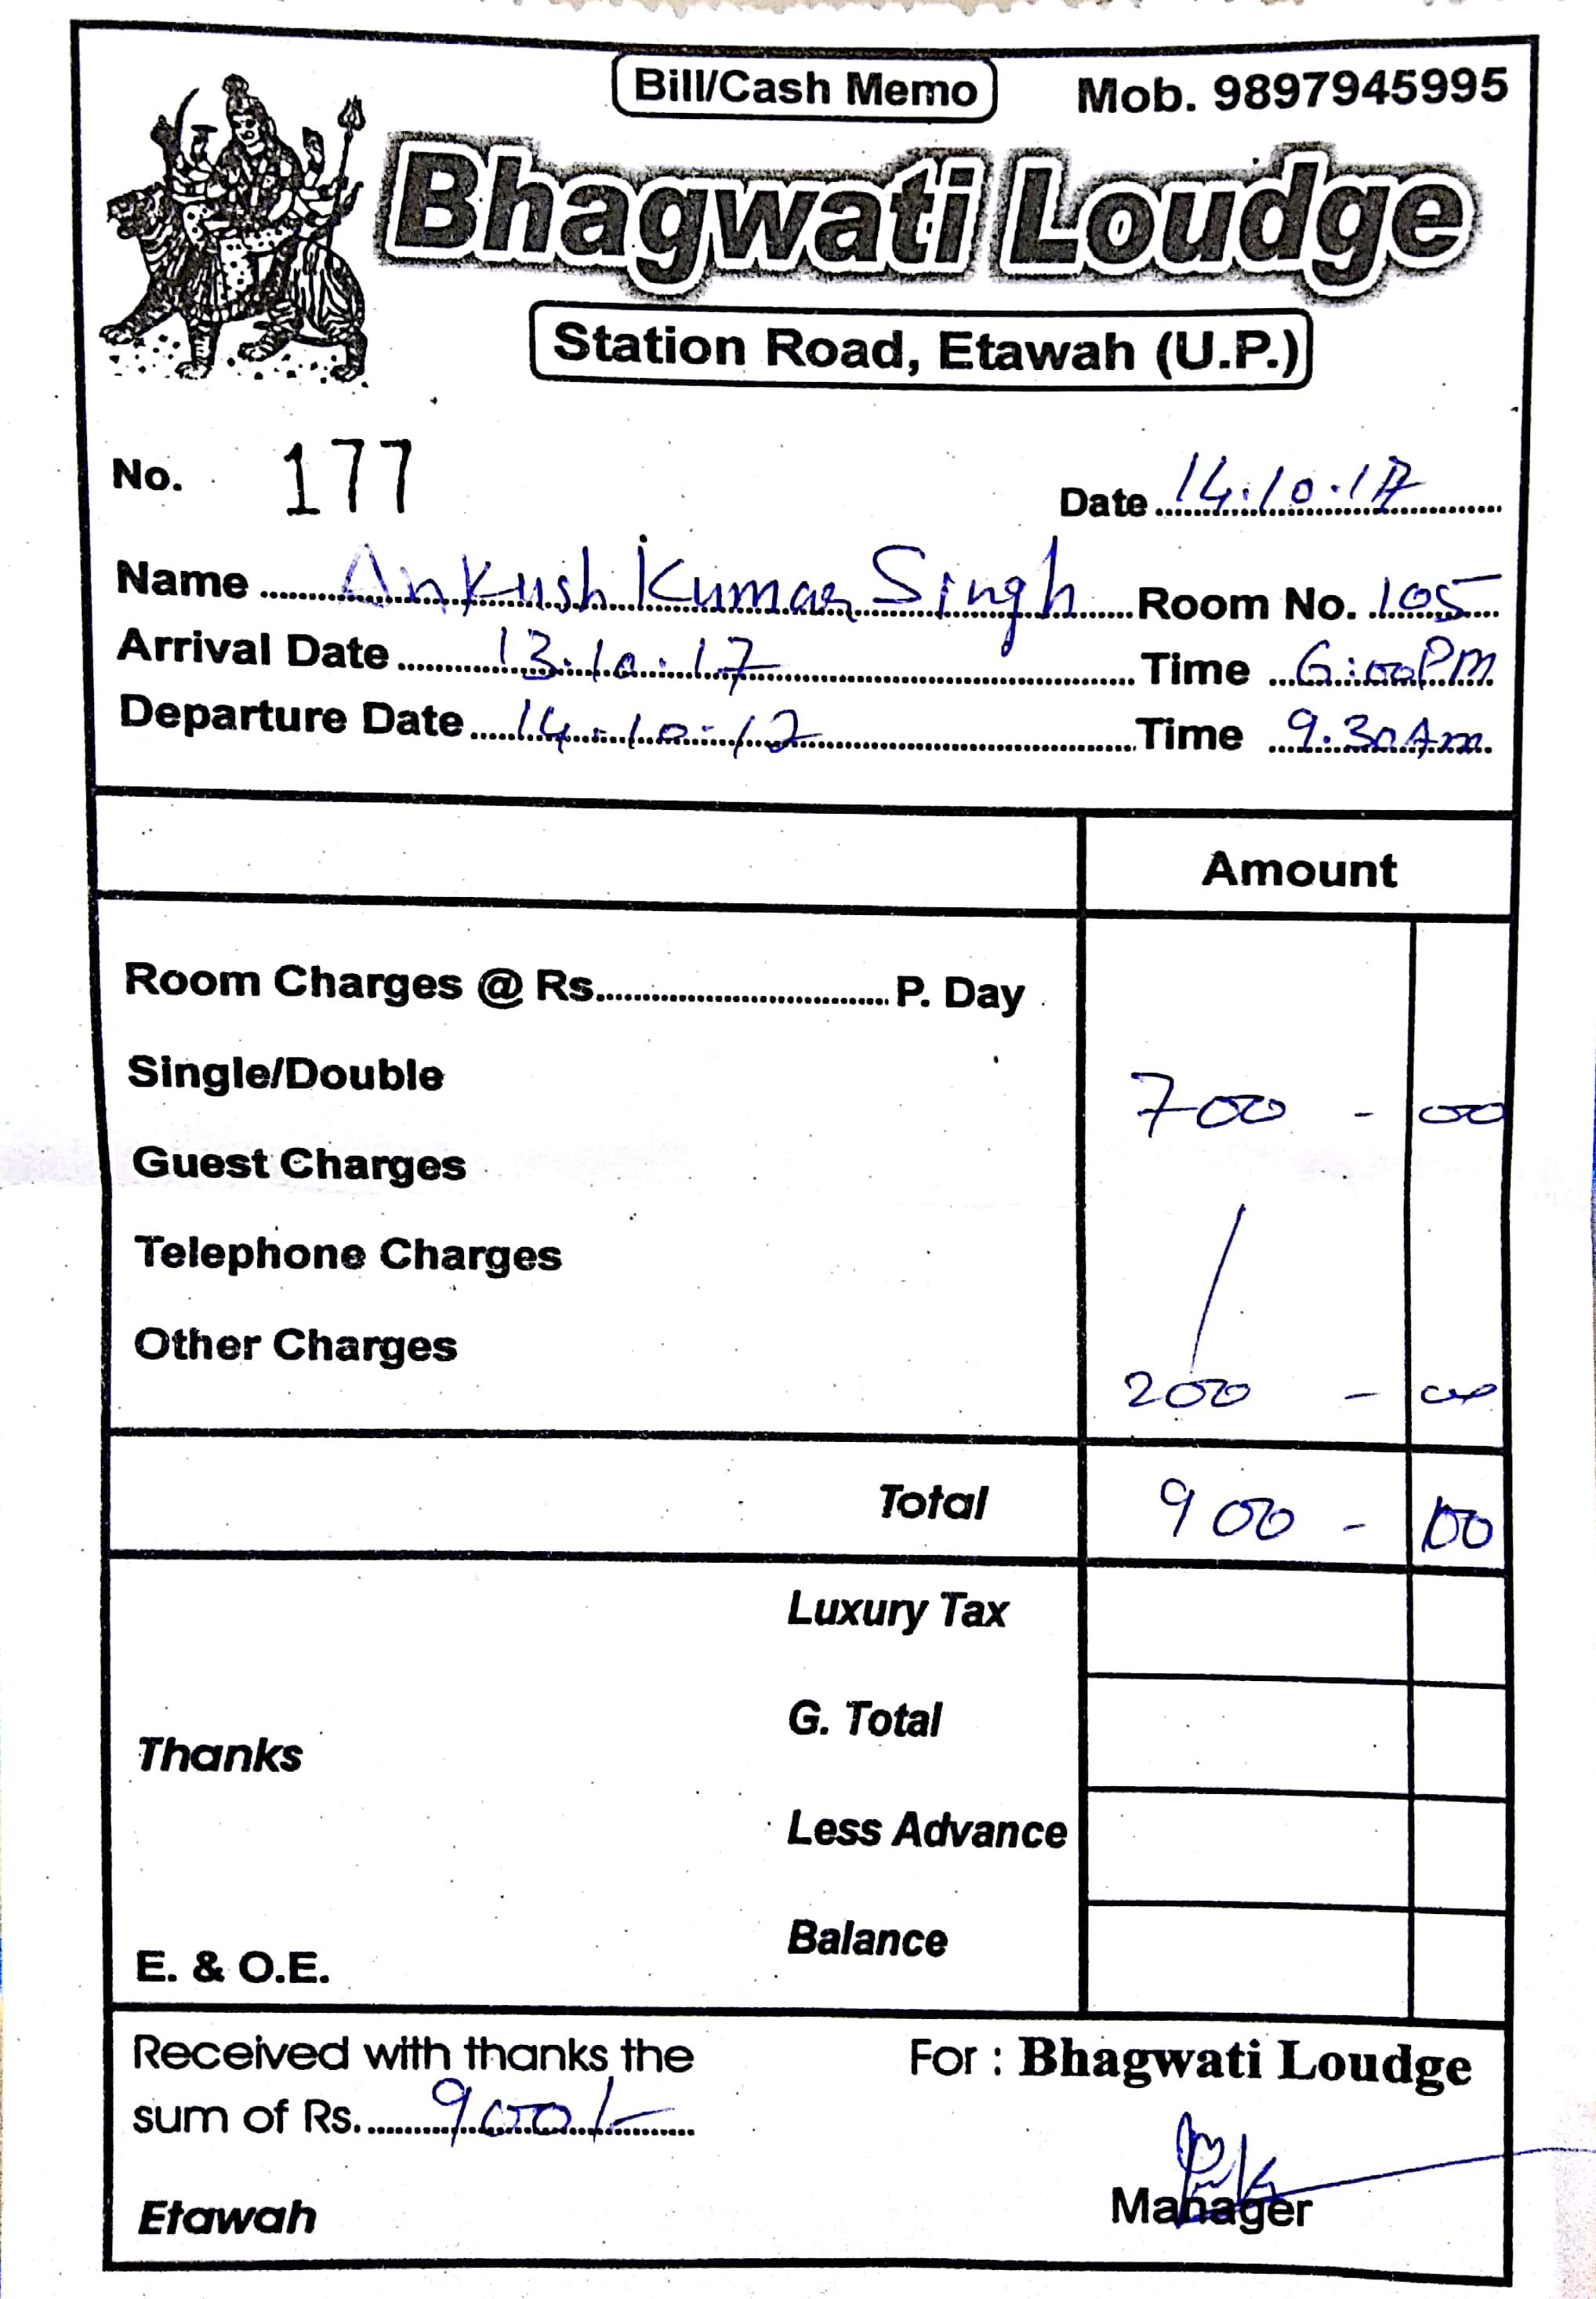 Bill/Cash Memo Mob. 9897945995
Bhagwati Loudge
Station Road, Etawah (U.P.)
No. 177 Date 14.10.17
Name Ankush Kumar Singh Room No. 105
Arrival Date 13.10.17 Time 6:00PM
Departure Date 14.10.17 Time 9.30Am
Amount
Room Charges @ Rs.............................. P. Day
Single/Double 700 - 00
Guest Charges
Telephone Charges
Other Charges 200 - 00
Total 900 - 00
Luxury Tax
G. Total
Thanks
Less Advance
Balance
E. & O.E.
Received with thanks the For : Bhagwati Loudge
sum of Rs. 900/-
Etawah Manager